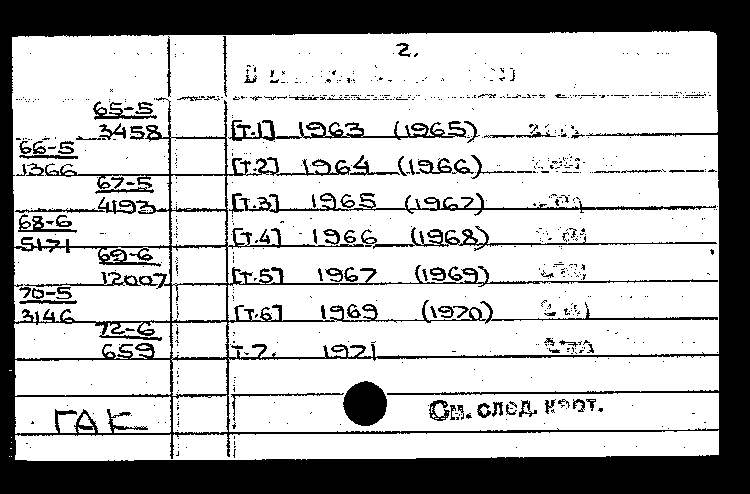 2.
65-5
3458 [т.1] 1963 (1965)
66-5
1366 [т.2] 1964 (1966)
67-5
4193 [т.3] 1965 (1967)
68-6
5171 [т.4] 1966 (1968)
69-6
12007 [т.5] 1967 (1969)
70-5
3146 [т.6] 1969 (1970)
72-6
659 т.7. 1971
ГАК См. след. карт.